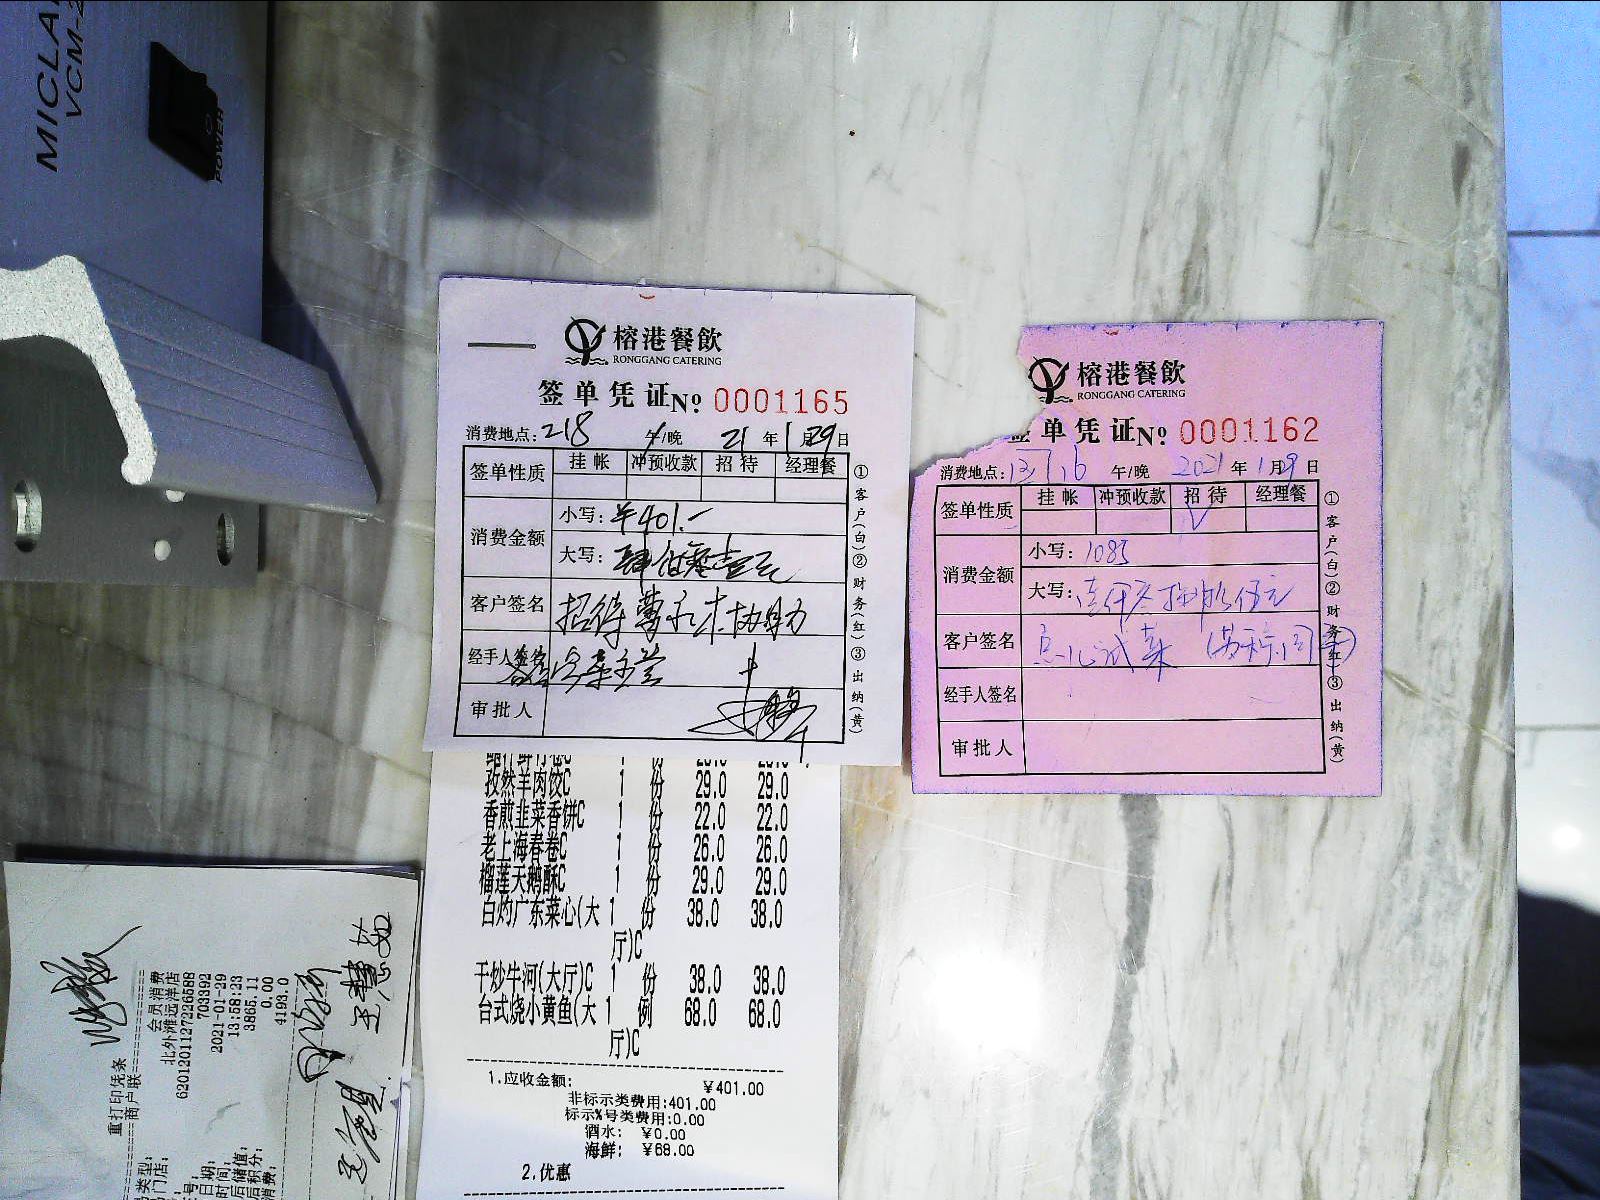 MICLA
VCM-2
POWER
榕港餐飲
RONGGANG CATERING
签单凭证 № 0001165
消费地点: 218 午/晚 21年1月29日
签单性质 挂帐 冲预收款 招待 经理餐
消费金额 小写: ¥401.-
大写: 肆佰零壹元
客户签名 招待
经手人签名
审批人
①客户(白)②财务(红)③出纳(黄)
榕港餐飲
RONGGANG CATERING
签单凭证 № 0001162
消费地点: 午/晚 2021年1月29日
签单性质 挂帐 冲预收款 招待 经理餐
消费金额 小写: 1085
大写: 壹仟零捌拾伍元
客户签名 点心试菜
经手人签名
审批人
①客户(白)②财务(红)③出纳(黄)
孜然羊肉饺C 1 份 29.0 29.0
香煎韭菜香饼C 1 份 22.0 22.0
老上海春卷C 1 份 26.0 26.0
榴莲天鹅酥C 1 份 29.0 29.0
白灼广东菜心(大 1 份 38.0 38.0
厅)C
干炒牛河(大厅)C 1 份 38.0 38.0
台式烧小黄鱼(大 1 例 68.0 68.0
厅)C
1.应收金额: ¥401.00
非标示类费用:401.00
标示%号类费用:0.00
酒水: ¥0.00
海鲜: ¥68.00
2.优惠
重打印凭条
商户联
会员消费
北外滩远洋店
6201201127226588
703392
2021-01-29
13:58:23
3865.11
0.00
4193.0